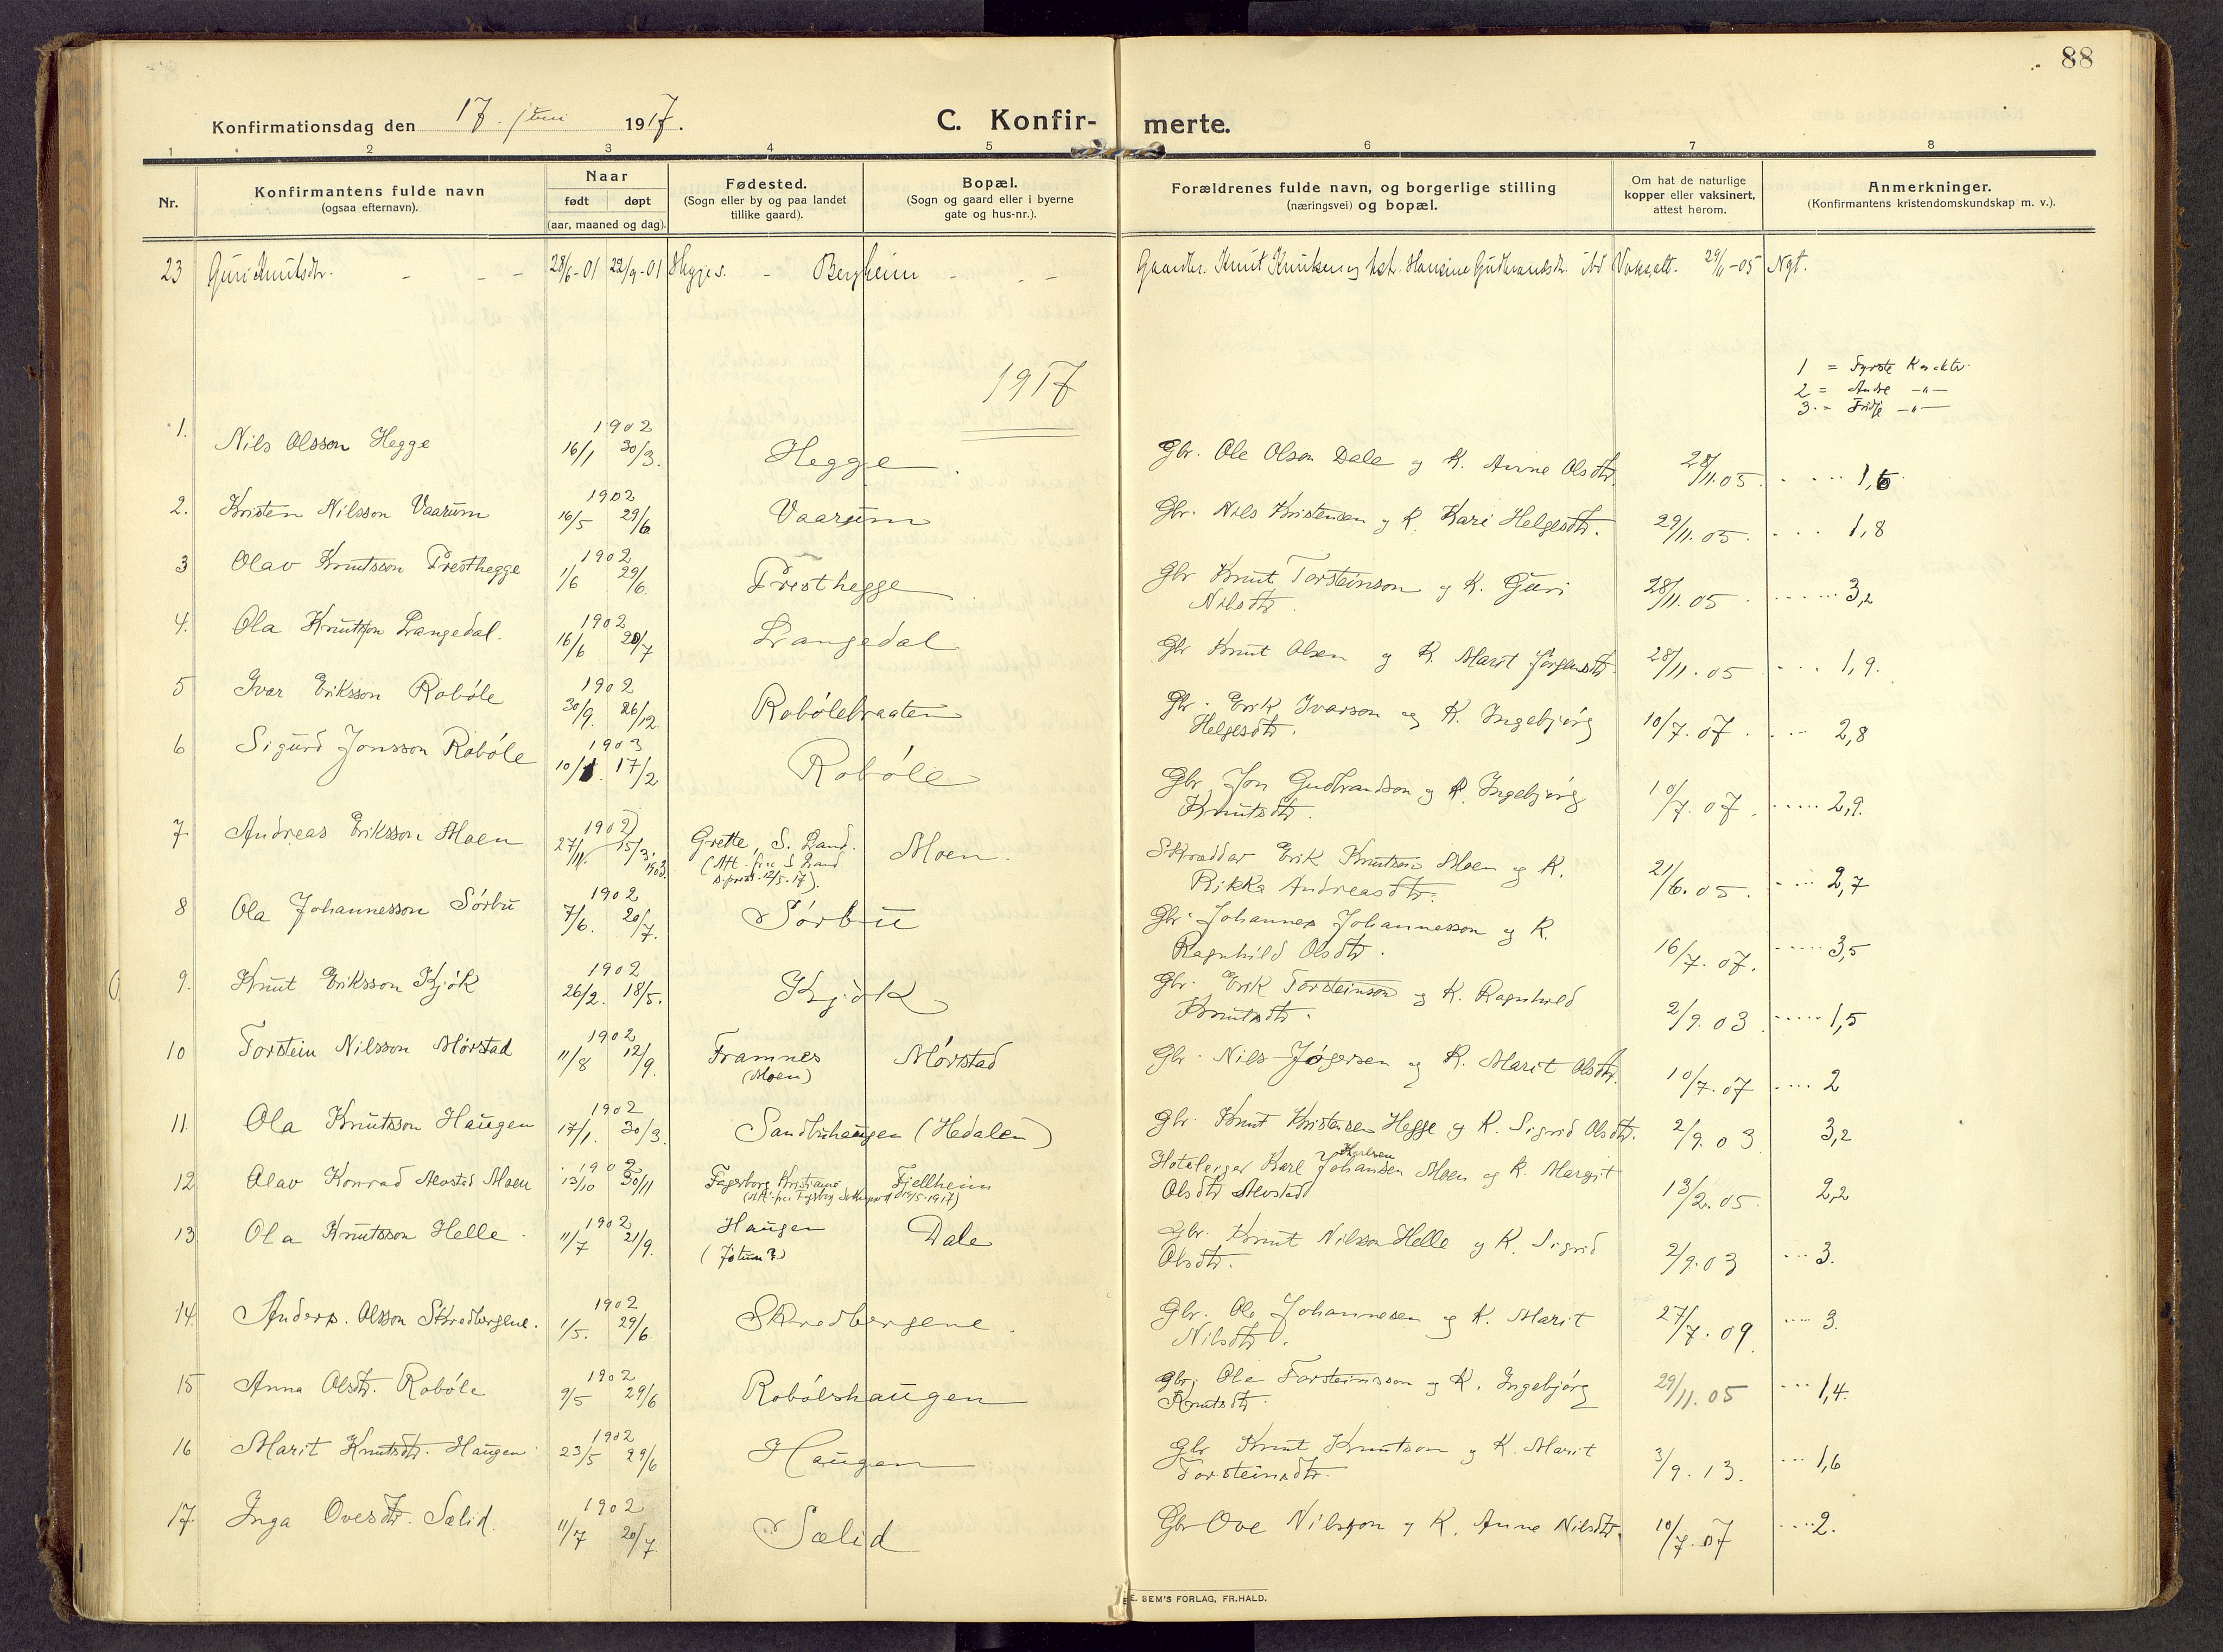 88
Konfirmationsdag den 17. juni 1917. C. Konfir- merte.
1 2 3 4 5 6 7 8
Nr. Konfirmantens fulde navn (ogsaa efternavn). Naar født døpt (aar, maaned og dag). Fødested. (Sogn eller by og paa landet tillike gaard). Bopæl. (Sogn og gaard eller i byerne gate og hus-nr.). Forældrenes fulde navn, og borgerlige stilling (næringsvei) og bopæl. Om hat de naturlige kopper eller vaksinert, attest herom. Anmerkninger. (Konfirmantens kristendomskundskap m. v.).
23 Guri Knutsdtr. - - - 28/6-01 22/9-01 - Bergheim - - - Gaardbr. Knut Knutsen og hst. Hansine Gudbrandsdtr. ibd Vaks.att. 29/6-05 Ngt.
1917
1 = Fyrste Karakter
2 = Andre -"-
3. = Tridje -"-
1. Nils Olsson Hegge 1902 16/1 30/3. Hegge. Gbr. Ole Olson Dale og K. Anne Olsdtr. 28/11.05. .... 1,6
2. Kristen Nilsson Vaarum 1902 16/5 29/6 Vaarum Gbr. Nils Kristensen og K. Kari Helgesdtr. 29/11.05. ... 1,8
3 Olav Knutsson Presthegge 1902 1/6 29/6. Presthegge Gbr Knut Torsteinson og K. Guri
Nilsdtr. 28/11.05 ...... 3,2
4. Ola Knutsson Langedal. 1902 16/6 20/7 Langedal Gbr Knut Olsen og K. Marit Jørgensdtr. 28/11.05 .... 1,9.
5 Ivar Eriksson Robøle 1902 30/9. 26/12 Robølebraaten Gbr. Erik Ivarson og K. Ingebjørg
Helgesdtr. 10/7.07. ... 2,8
6 Sigurd Jonsson Robøle 1903 10/1. 17/2 Robøle Gbr Jon Gudbrandson og K. Ingebjørg
Knutsdtr. 10/7.07. ..... 2,9.
7. Andreas Eriksson Moen 1902 27/11. 15/3. 1903. Grette, S. Land.
(Att. fra S Land
s.prest. 12/5.17). Moen. Skrædder Erik Knutson Moen og K.
Rikka Andreasdtr. 21/6.05. .... 2,7
8 Ola Johannesson Sørbu 1902 7/6. 20/7. Sørbu Gbr. Johannes Johannesson og K.
Ragnhild Olsdtr. 16/7.07. ..... 3,5
9. Knut Eriksson Kjøk 1902 26/2. 18/5. Kjøk Gbr. Erik Torsteinson og K. Ragnhild
Knutsdtr. 2/9.03 ..... 1,5
10 Torstein Nilsson Mørstad 1902 11/8 12/9. Framnes
(Moen) Mørstad Gbr. Nils Jøgersen og K. Marit Olsdtr. 10/7.07 .... 2
11. Ola Knutsson Haugen 1902 17/1. 30/3. Sandbuhaugen (Hedalen) Gbr. Knut Kristensen Hegge og K. Sigrid Olsdtr. 2/9.03 3,2
12 Olav Konrad Alvstad Moen 1902 13/10 30/11 Fagerborg Kristiania Fjellheim Hoteleiger Karl Johansen Karlsen Moen og K. Margit
Olsdtr Alvstad 13/2.05. 2,2
13 Ola Knutsson Helle. 1902 11/7 21/9. Haugen
(Jøtun?) Dale Gbr. Knut Nilsson Helle og K. Sigrid
Olsdtr. 2/9.03 ... 3.
14. Anders. Olsson Skredbergene. 1902 1/5. 29/6. Skredbergene. Gbr. Ole Johannesen og K. Marit
Nilsdtr. 27/7.09 .... 3.
15 Anna Olsdtr. Robøle 1902 9/5 29/6 Robølshaugen Gbr. Ole Torsteinsson og K. Ingebjørg
Knutsdtr. 29/11.05 ... 1,4.
16 Marit Knutsdtr. Haugen 1902 23/5 29/6 Haugen Gbr Knut Knutson og K. Marit
Torsteinsdtr. 3/9.13. ... 1,6
17. Inga Ovesdtr. Sælid. 1902 11/7 20/7 Sælid Gbr Ove Nilsson og K. Anne Nilsdtr. 10/7.07 .... 2.
E. SEM'S FORLAG, FR.HALD.